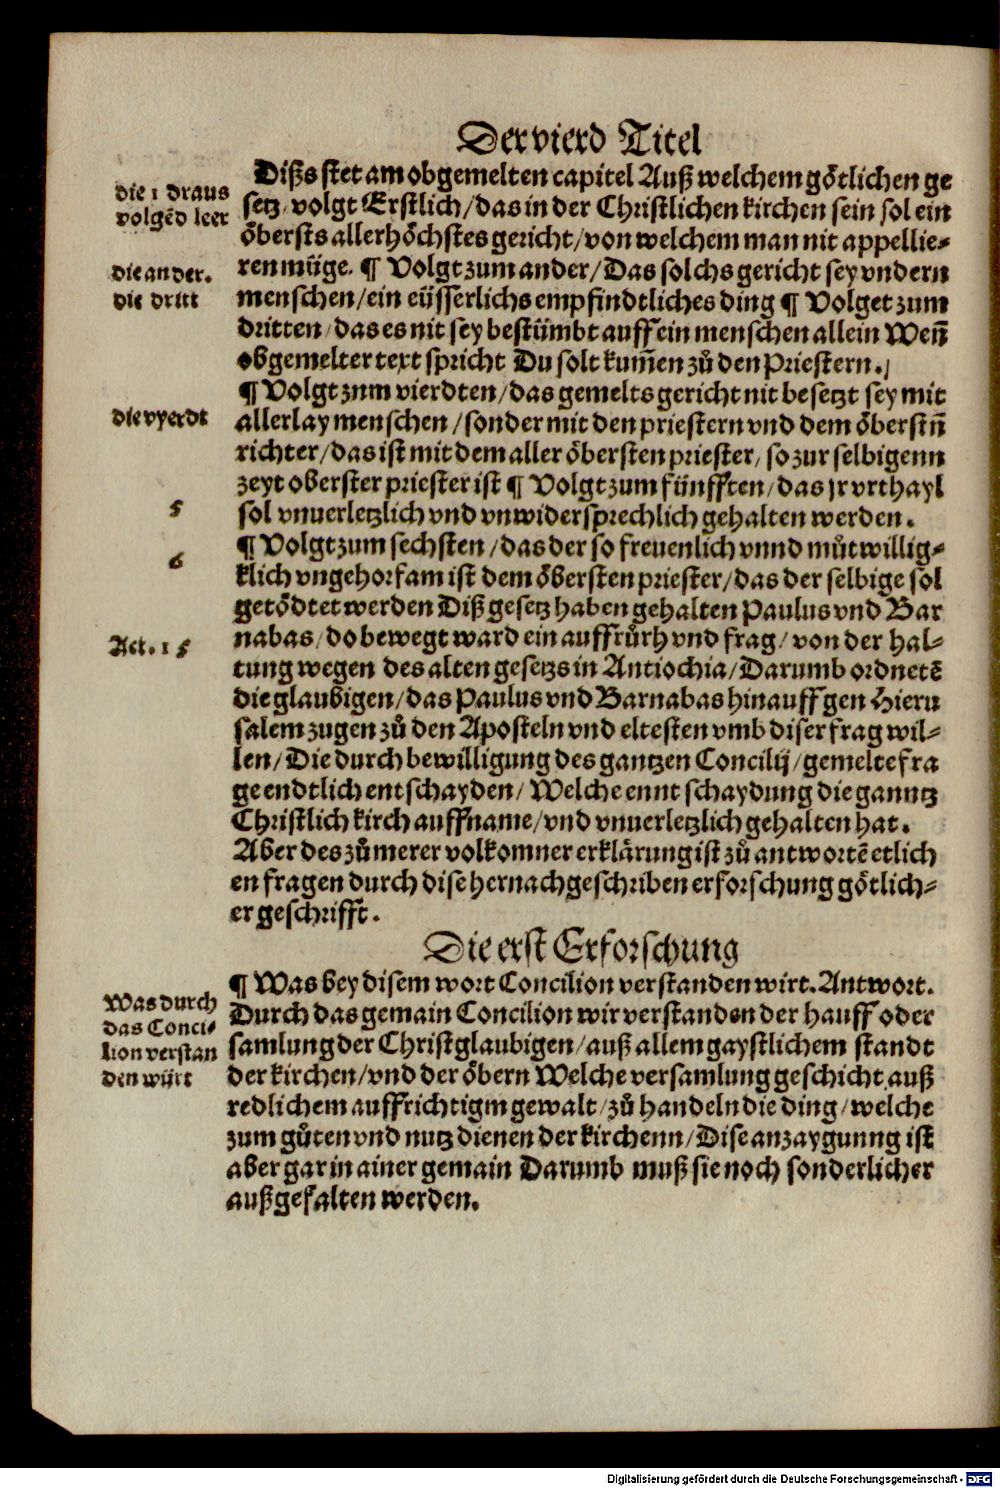 Der vierd Titel
Dißs stet am obgemelten capitel Auß welchem götlichen ge
die 1 draus
volgēd leer
setz, volgt Erstlich/das in der Christlichen kirchen sein sol ein
öbersts allerhöchstes gericht/von welchem man nit appellie-
die ander.
ren müge. ¶ Volgt zum ander/Das solchs gericht sey vndern
die dritt
menschen/ein eüsserlichs empfindtliches ding ¶ Volget zum
dritten/das es nit sey bestümbt auff ein menschen allein Weñ
obgemelter text spricht Du solt kum̃en zů den Priestern./
¶ Volgt znm vierdten/das gemelts gericht nit besetzt sey mit
die vyerdt
allerlay menschen/sonder mit den priestern vnd dem öberstñ
richter/das ist mit dem aller öbersten priester/so zur selbigenn
zeyt oberster priester ist ¶ Volgt zum fünfften/das jr vrthayl
5
sol vnuerletzlich vnd vnwidersprechlich gehalten werden.
¶ Volgt zum sechsten/das der so freuenlich vnnd můtwillig-
6
klich vngehorsam ist dem öbersten priester/das der selbige sol
getödtet werden Diß gesetz haben gehalten Paulus vnd Bar
Act. 15
nabas/do bewegt ward ein auffrůrh vnd frag/von der hal-
tung wegen des alten gesetzs in Antiochia/Darumb ordnetē
die glaubigen/das Paulus vnd Barnabas hinauff gen Hieru
salem zugen zů den Aposteln vnd eltesten vmb diser frag wil-
len/Die durch bewilligung des gantzen Concilij/gemelte fra
ge endtlich entschayden/Welche ennt schaydung die ganntz
Christlich kirch auffname/vnd vnuerletzlich gehalten hat.
Aber des zů merer volkomner erklärung ist zů antwortē etlich
en fragen durch dise hernachgeschriben erforschung götlich-
er geschrifft.
Die erst Erforschung
¶ Was bey disem wort Concilion verstanden wirt. Antwort.
Was durch
das Conci-
lion verstan
den würt
Durch das gemain Concilion wir verstanden der hauff oder
samlung der Christglaubigen/auß allem gaystlichem standt
der kirchen/vnd der öbern Welche versamlung geschicht auß
redlichem auffrichtigm gewalt/zů handeln die ding/welche
zum gůten vnd nutz dienen der kirchenn/Dise anzaygunng ist
aber gar in ainer gemain Darumb muß sie noch sonderlicher
außgefalten werden.
Digitalisierung gefördert durch die Deutsche Forschungsgemeinschaft - DFG